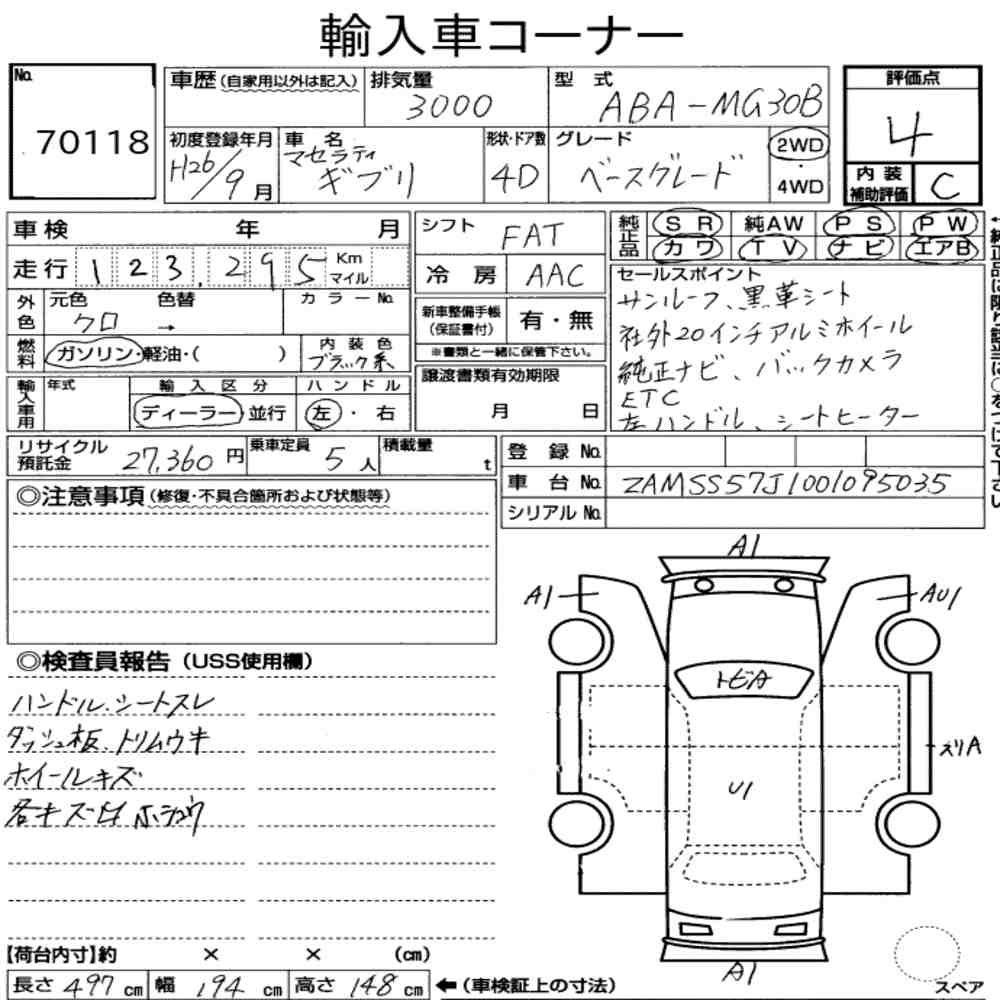 輸入車コーナー
No. 70118
車歴 (自家用以外は記入)
排気量 3000
型式 ABA-MG30B
評価点 4
初度登録年月 H26/9月
車名 マセラティ ギブリ
形状・ドア数 4D
グレード ベースグレード
2WD・4WD
内装補助評価 C
車検 年 月
シフト FAT
純正品 SR 純AW PS PW
カワ TV ナビ エアB
走行 123,295 Km マイル
冷房 AAC
セールスポイント
サンルーフ、黒革シート
社外20インチアルミホイール
純正ナビ、バックカメラ
ETC
左ハンドル、シートヒーター
外色 元色 クロ → 色替 カラーNo.
新車整備手帳(保証書付) 有・無
※書類と一緒に保管下さい。
燃料 ガソリン・軽油・( )
内装色 ブラック系
譲渡書類有効期限 月 日
輸入車用 年式
輸入区分 ディーラー 並行
ハンドル 左・右
リサイクル預託金 27,360円
乗車定員 5人
積載量 t
登録No.
車台No. ZAMSS57J1001095035
シリアルNo.
◎注意事項 (修復・不具合箇所および状態等)
◎検査員報告 (USS使用欄)
ハンドル、シートスレ
ダッシュ板、トリムウキ
ホイールキズ
各キズ凹ホシュウ
A1
A1
AU1
トビA
ズリA
U1
A1
スペア
【荷台内寸】約 × × (cm)
長さ 497 cm 幅 194 cm 高さ 148 cm ←(車検証上の寸法)